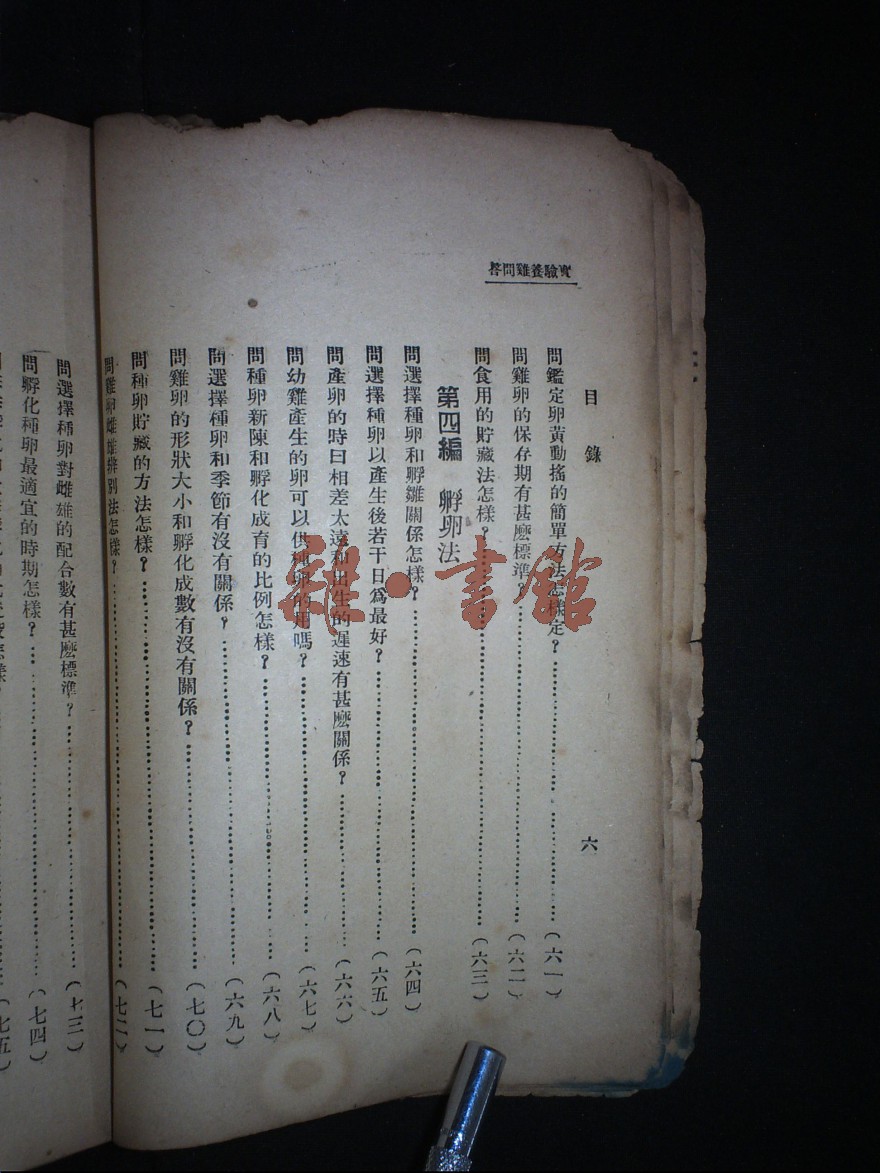 實驗養雞問答
目錄
六
問鑑定卵黃動搖的簡單方法怎樣定？……(六一)
問雞卵的保存期有甚麽標準？……(六二)
問食用的貯藏法怎樣？……(六三)
第四編 孵卵法
問選擇種卵和孵雛關係怎樣？……(六四)
問選擇種卵以產生後若干日爲最好？……(六五)
問產卵的時日相差太遠和出生的遲速有甚麽關係？……(六六)
問幼雞產生的卵可以供種卵的用嗎？……(六七)
問種卵新陳和孵化成育的比例怎樣？……(六八)
問選擇種卵和季節有沒有關係？……(六九)
問雞卵的形狀大小和孵化成數有沒有關係？……(七〇)
問種卵貯藏的方法怎樣？……(七一)
問雞卵雌雄辨別法怎樣？……(七二)
問選擇種卵對雌雄的配合數有甚麽標準？……(七三)
問孵化種卵最適宜的時期怎樣？……(七四)
(七五)
雜·書館